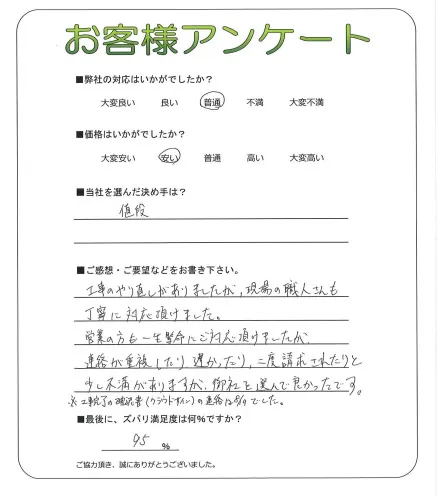 お客様アンケート
■弊社の対応はいかがでしたか？
大変良い 良い 普通 不満 大変不満
■価格はいかがでしたか？
大変安い 安い 普通 高い 大変高い
■当社を選んだ決め手は？
値段
■ご感想・ご要望などをお書き下さい。
工事のやり直しがありましたが、現場の職人さんも
丁寧に対応頂けました。
営業の方も一生懸命にご対応頂けましたが、
連絡が重複したり 遅かったり、二度請求されたりと
少し不満がありますが、御社を選んで良かったです。
※工事完了の確認書(クラウドサイン)の連絡は でした。
■最後に、ズバリ満足度は何%ですか？
95 %
ご協力頂き、誠にありがとうございました。